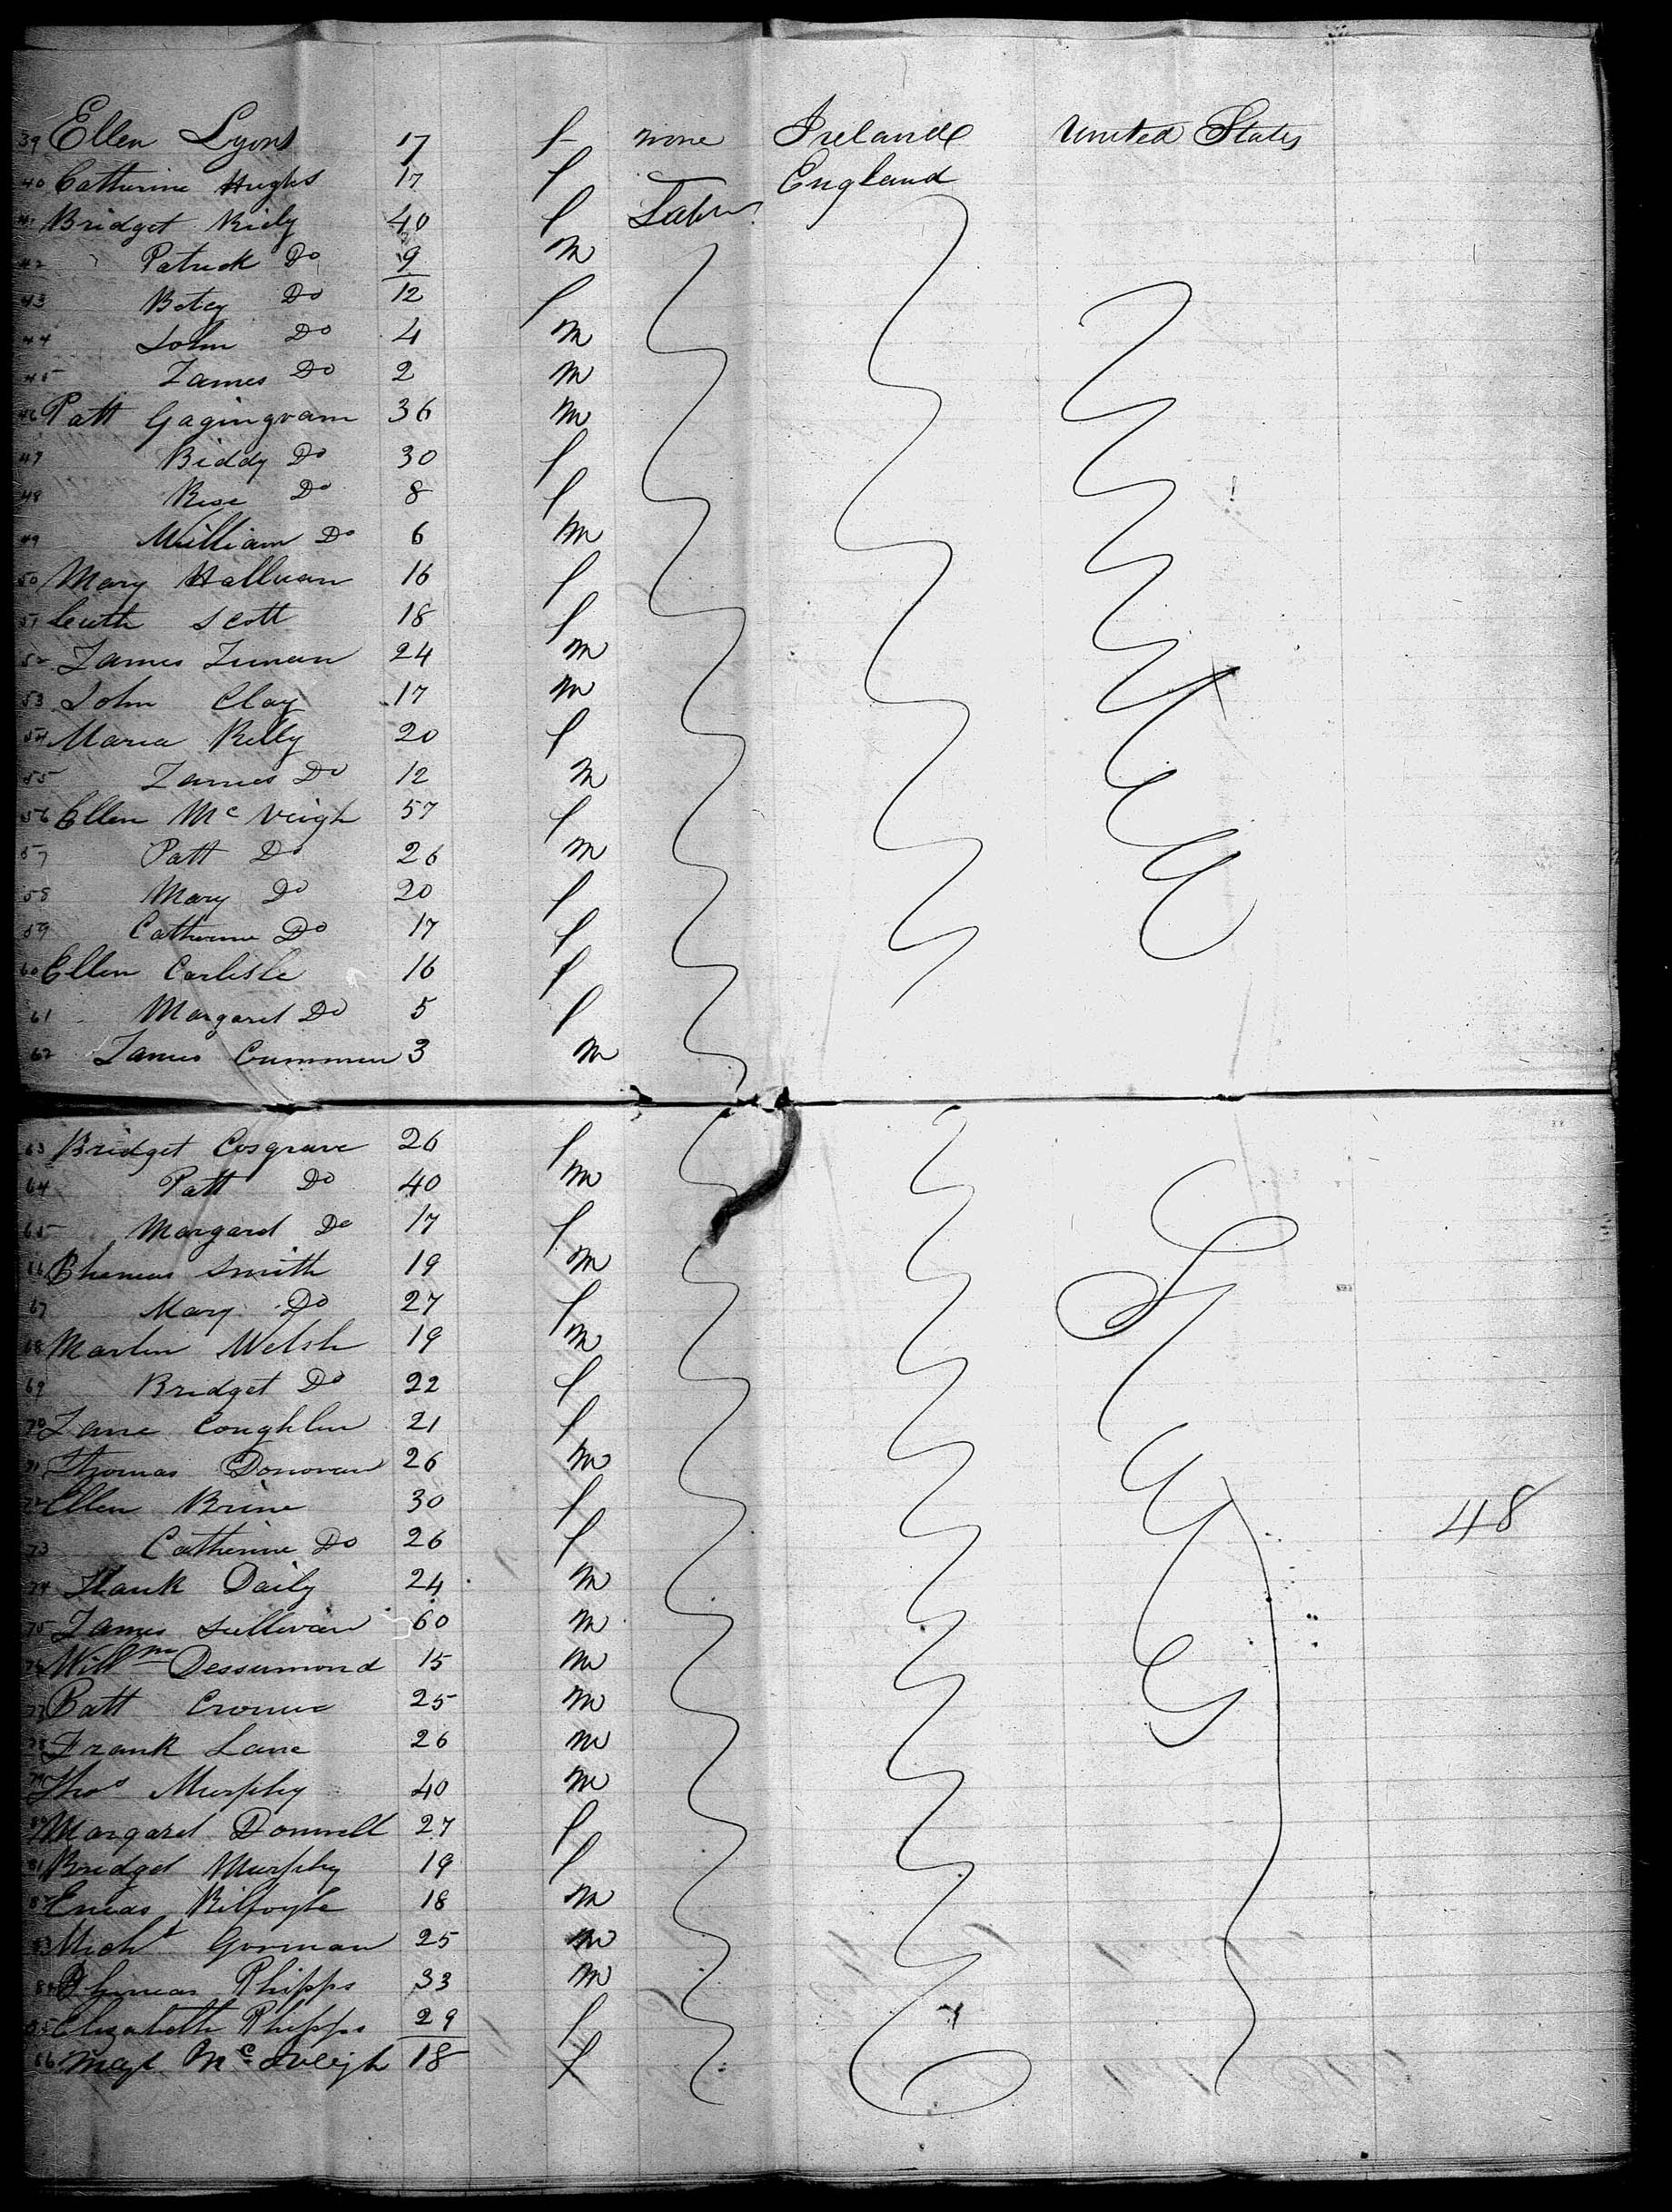 39 Ellen Lyons 17 f none Ireland United States
40 Catherine Hughs 17 f England
41 Bridget Riely 40 f Labr
42 Patrick Do 9 m
43 Betey Do 12 f
44 John Do 4 m
45 James Do 2 m
46 Patt Gagingram 36 m
47 Biddy Do 30 f
48 Rose Do 8 f
49 William Do 6 m
50 Mary Halluan 16 f
51 Scott 18 f
52 James 24 m
53 John Clay 17 m
54 Maria Kelly 20 f
55 James Do 12 m
56 Ellen Mc Veigh 57 f
57 Patt Do 26 m
58 Mary Do 20 f
59 Catherine Do 17 f
60 Ellen Carlisle 16 f
61 Margaret Do 5 f
62 James Cummen 3 m
63 Bridget Cosgrave 26 f
64 Patt Do 40 m
65 Margaret Do 17 f
66 Smith 19 m
67 Mary Do 27 f
68 Martin Welsh 19 m
69 Bridget Do 22 f
70 Jane Coughlin 21 f
71 Thomas Donovan 26 m
72 Ellen Brine 30 f 48
73 Catherine Do 26 f
74 Daily 24 m
75 James Sullivan 60 m
76 Willm Dessumond 15 m
77 Batt 25 m
78 Frank Lane 26 m
79 Thos Murphy 40 m
80 Margaret Donnell 27 f
81 Bridget Murphy 19 f
82 Eneas Kilfoyle 18 m
83 Michl Gorman 25 m
84 Phineas Phipps 33 m
85 Elizabeth Phipps 29 f
86 Magt 18 f